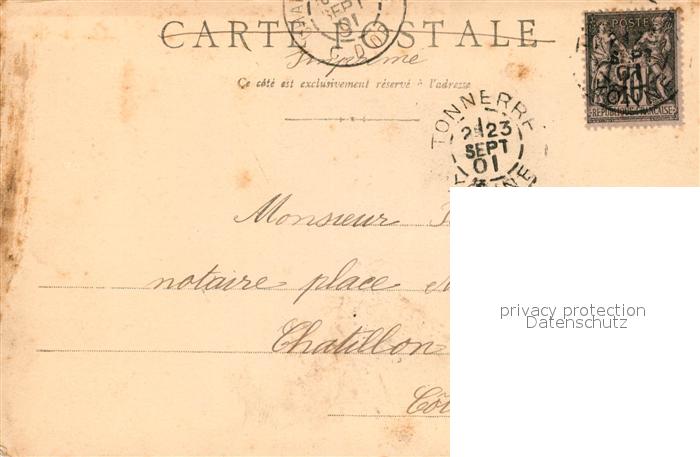 CARTE POSTALE
Imprimé
Ce côté est exclusivement réservé à l'adresse
SEPT
01
POSTE
10
RÉPUBLIQUE FRANÇAISE
TONNERRE
23
SEPT
01
Monsieur
notaire place
Chatillon
Côt
privacy protection
Datenschutz